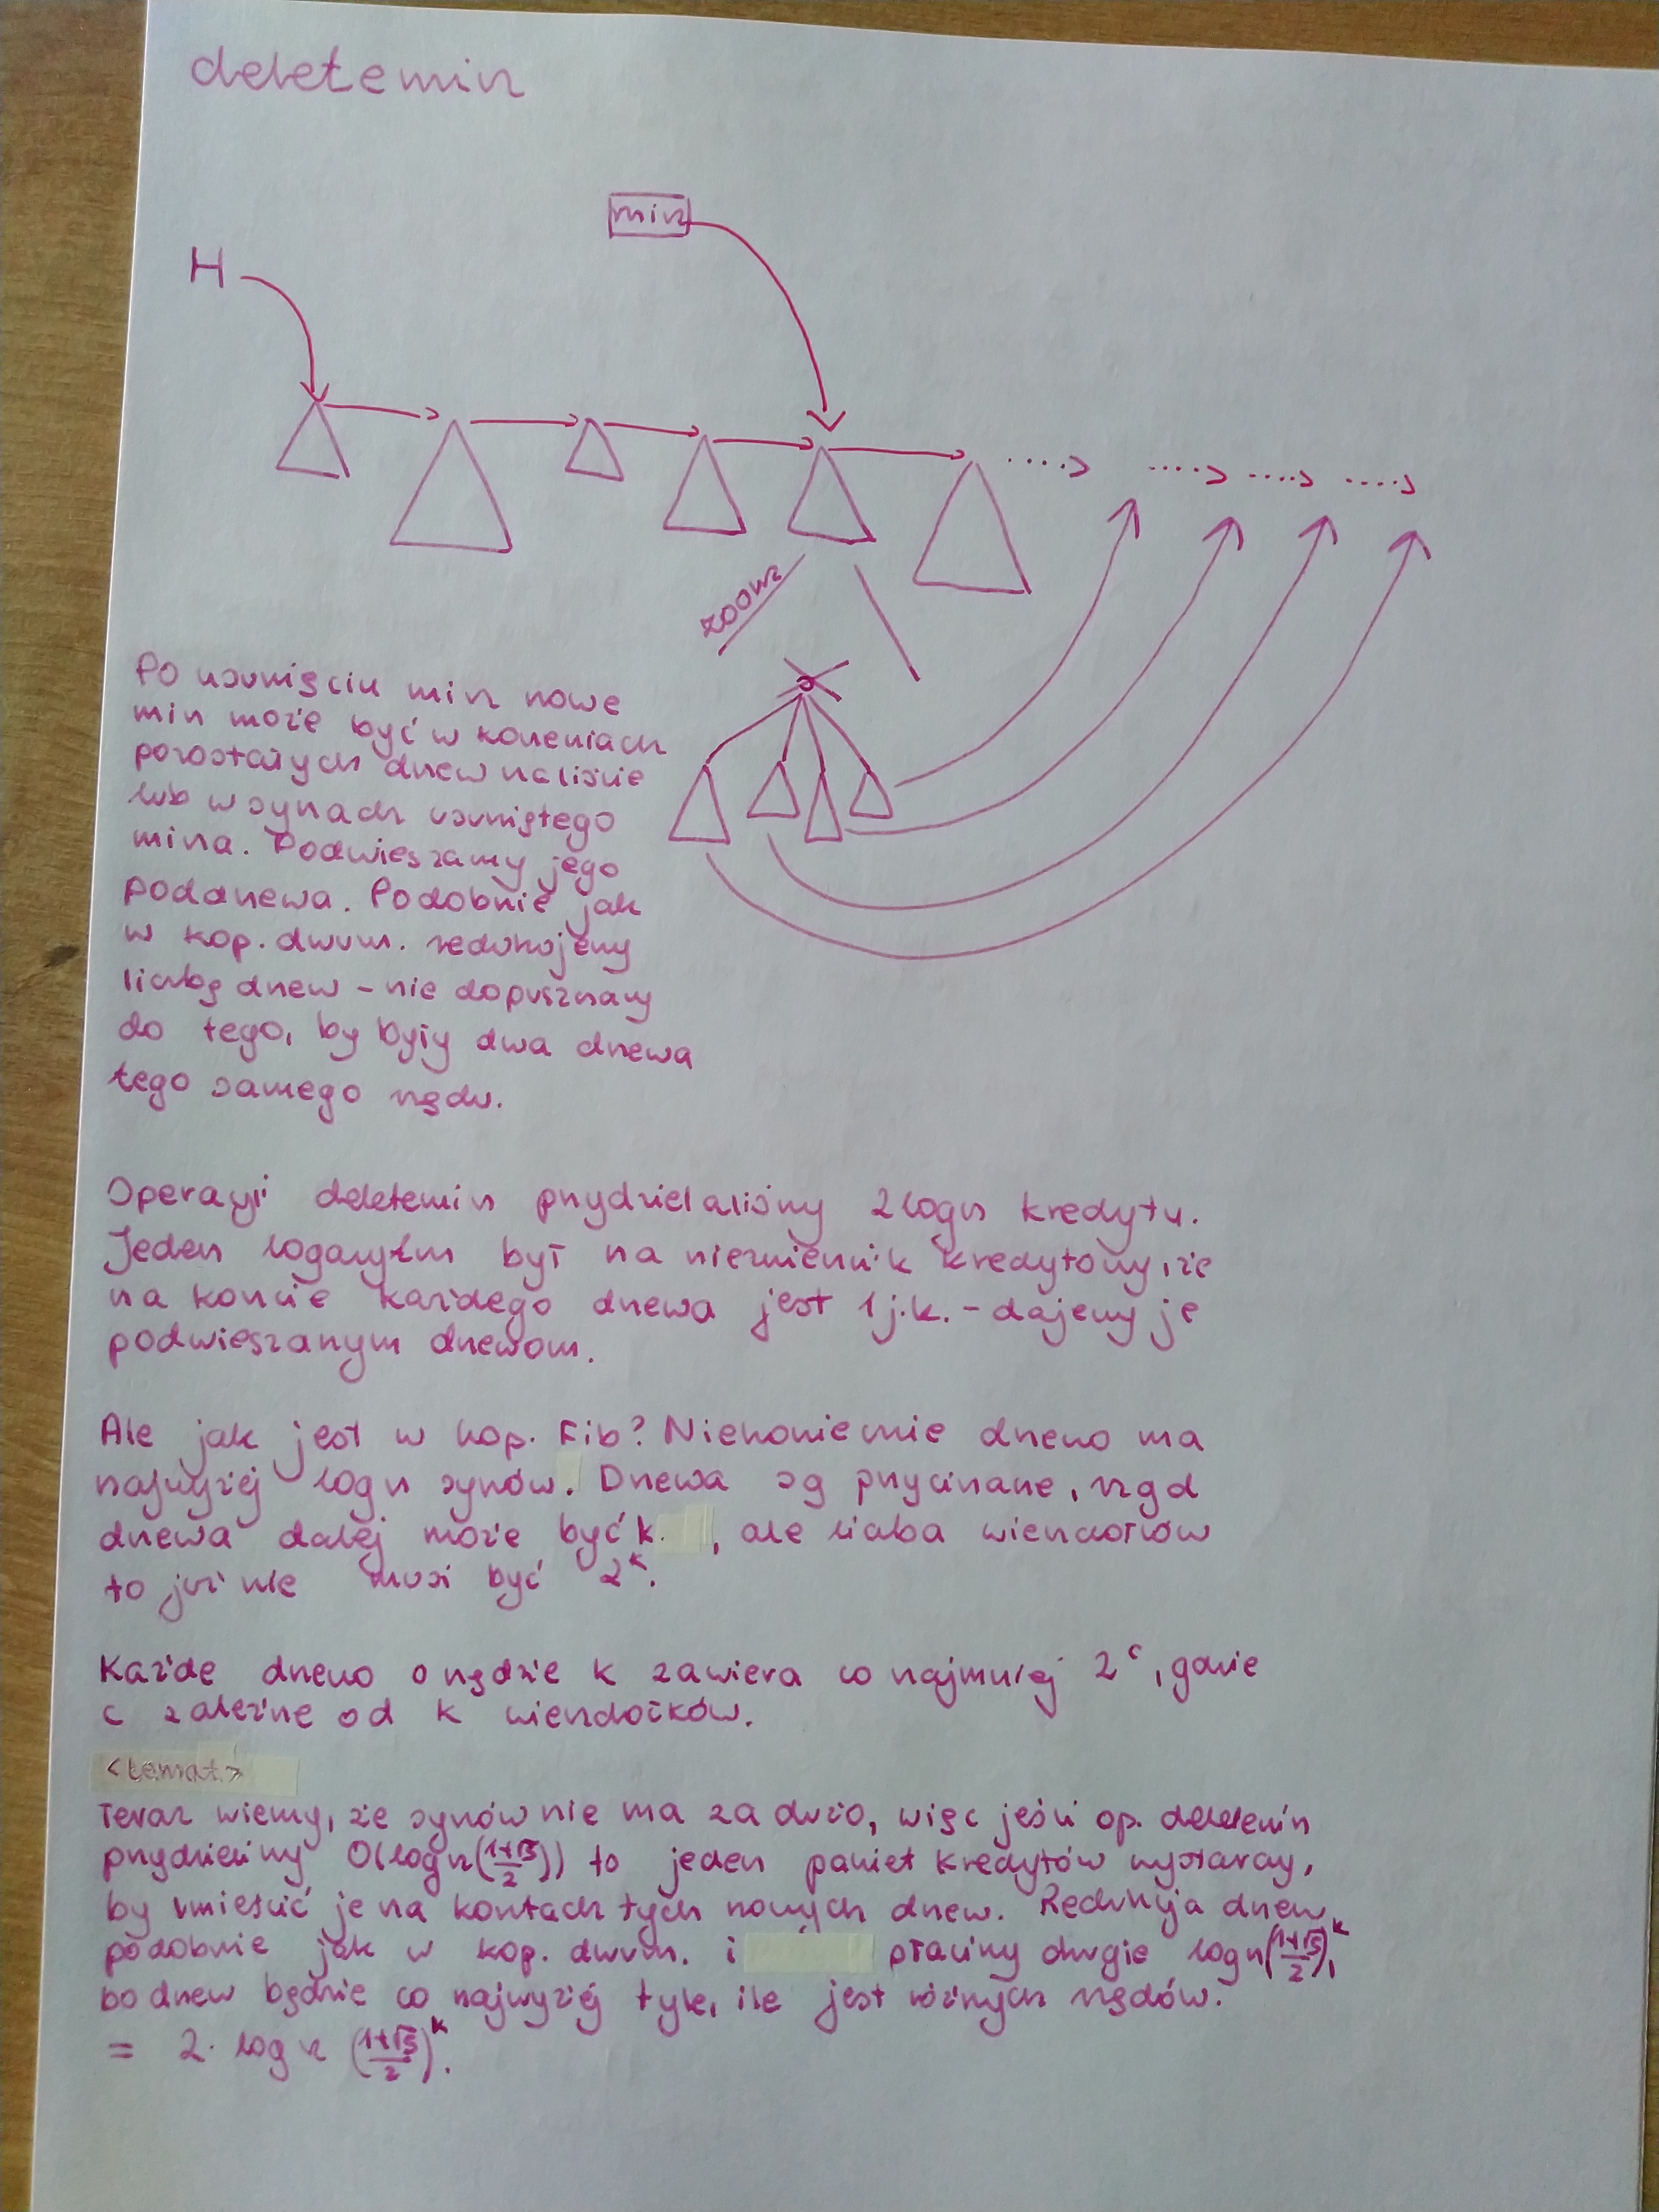 deletemin
min
H
zoom
Po usunięciu min nowe
min może być w korzeniach
pozostałych drzew na liście
lub w synach usuniętego
mina. Podwieszamy jego
poddrzewa. Podobnie jak
w kop. dwum. redukujemy
liczbę drzew - nie dopuszczamy
do tego, by były dwa drzewa
tego samego rzędu.
Operacji deletemin przydzielaliśmy 2logn kredytu.
Jeden logarytm był na niezmiennik kredytowy, że
na koncie każdego drzewa jest 1 j.k. - dajemy je
podwieszanym drzewom.
Ale jak jest w kop. Fib? Niekoniecznie drzewo ma
najwyżej logn synów. Drzewa są przycinane, rząd
drzewa dalej może być k, ale liczba wierzchołków
to już nie musi być 2^k.
Każde drzewo o rzędzie k zawiera co najmniej 2^c, gdzie
c zależne od k wierzchołków.
<temat>
Teraz wiemy, że synów nie ma za dużo, więc jeśli op. deletemin
przydzielimy O(logn((1+√5)/2)) to jeden pakiet kredytów wystarczy,
by umieścić je na kontach tych nowych drzew. Redukcja drzew
podobnie jak w kop. dwum. i płacimy drugie logn((1+√5)/2)^k,
bo drzew będzie co najwyżej tyle, ile jest różnych rzędów.
= 2. logn ((1+√5)/2)^k.